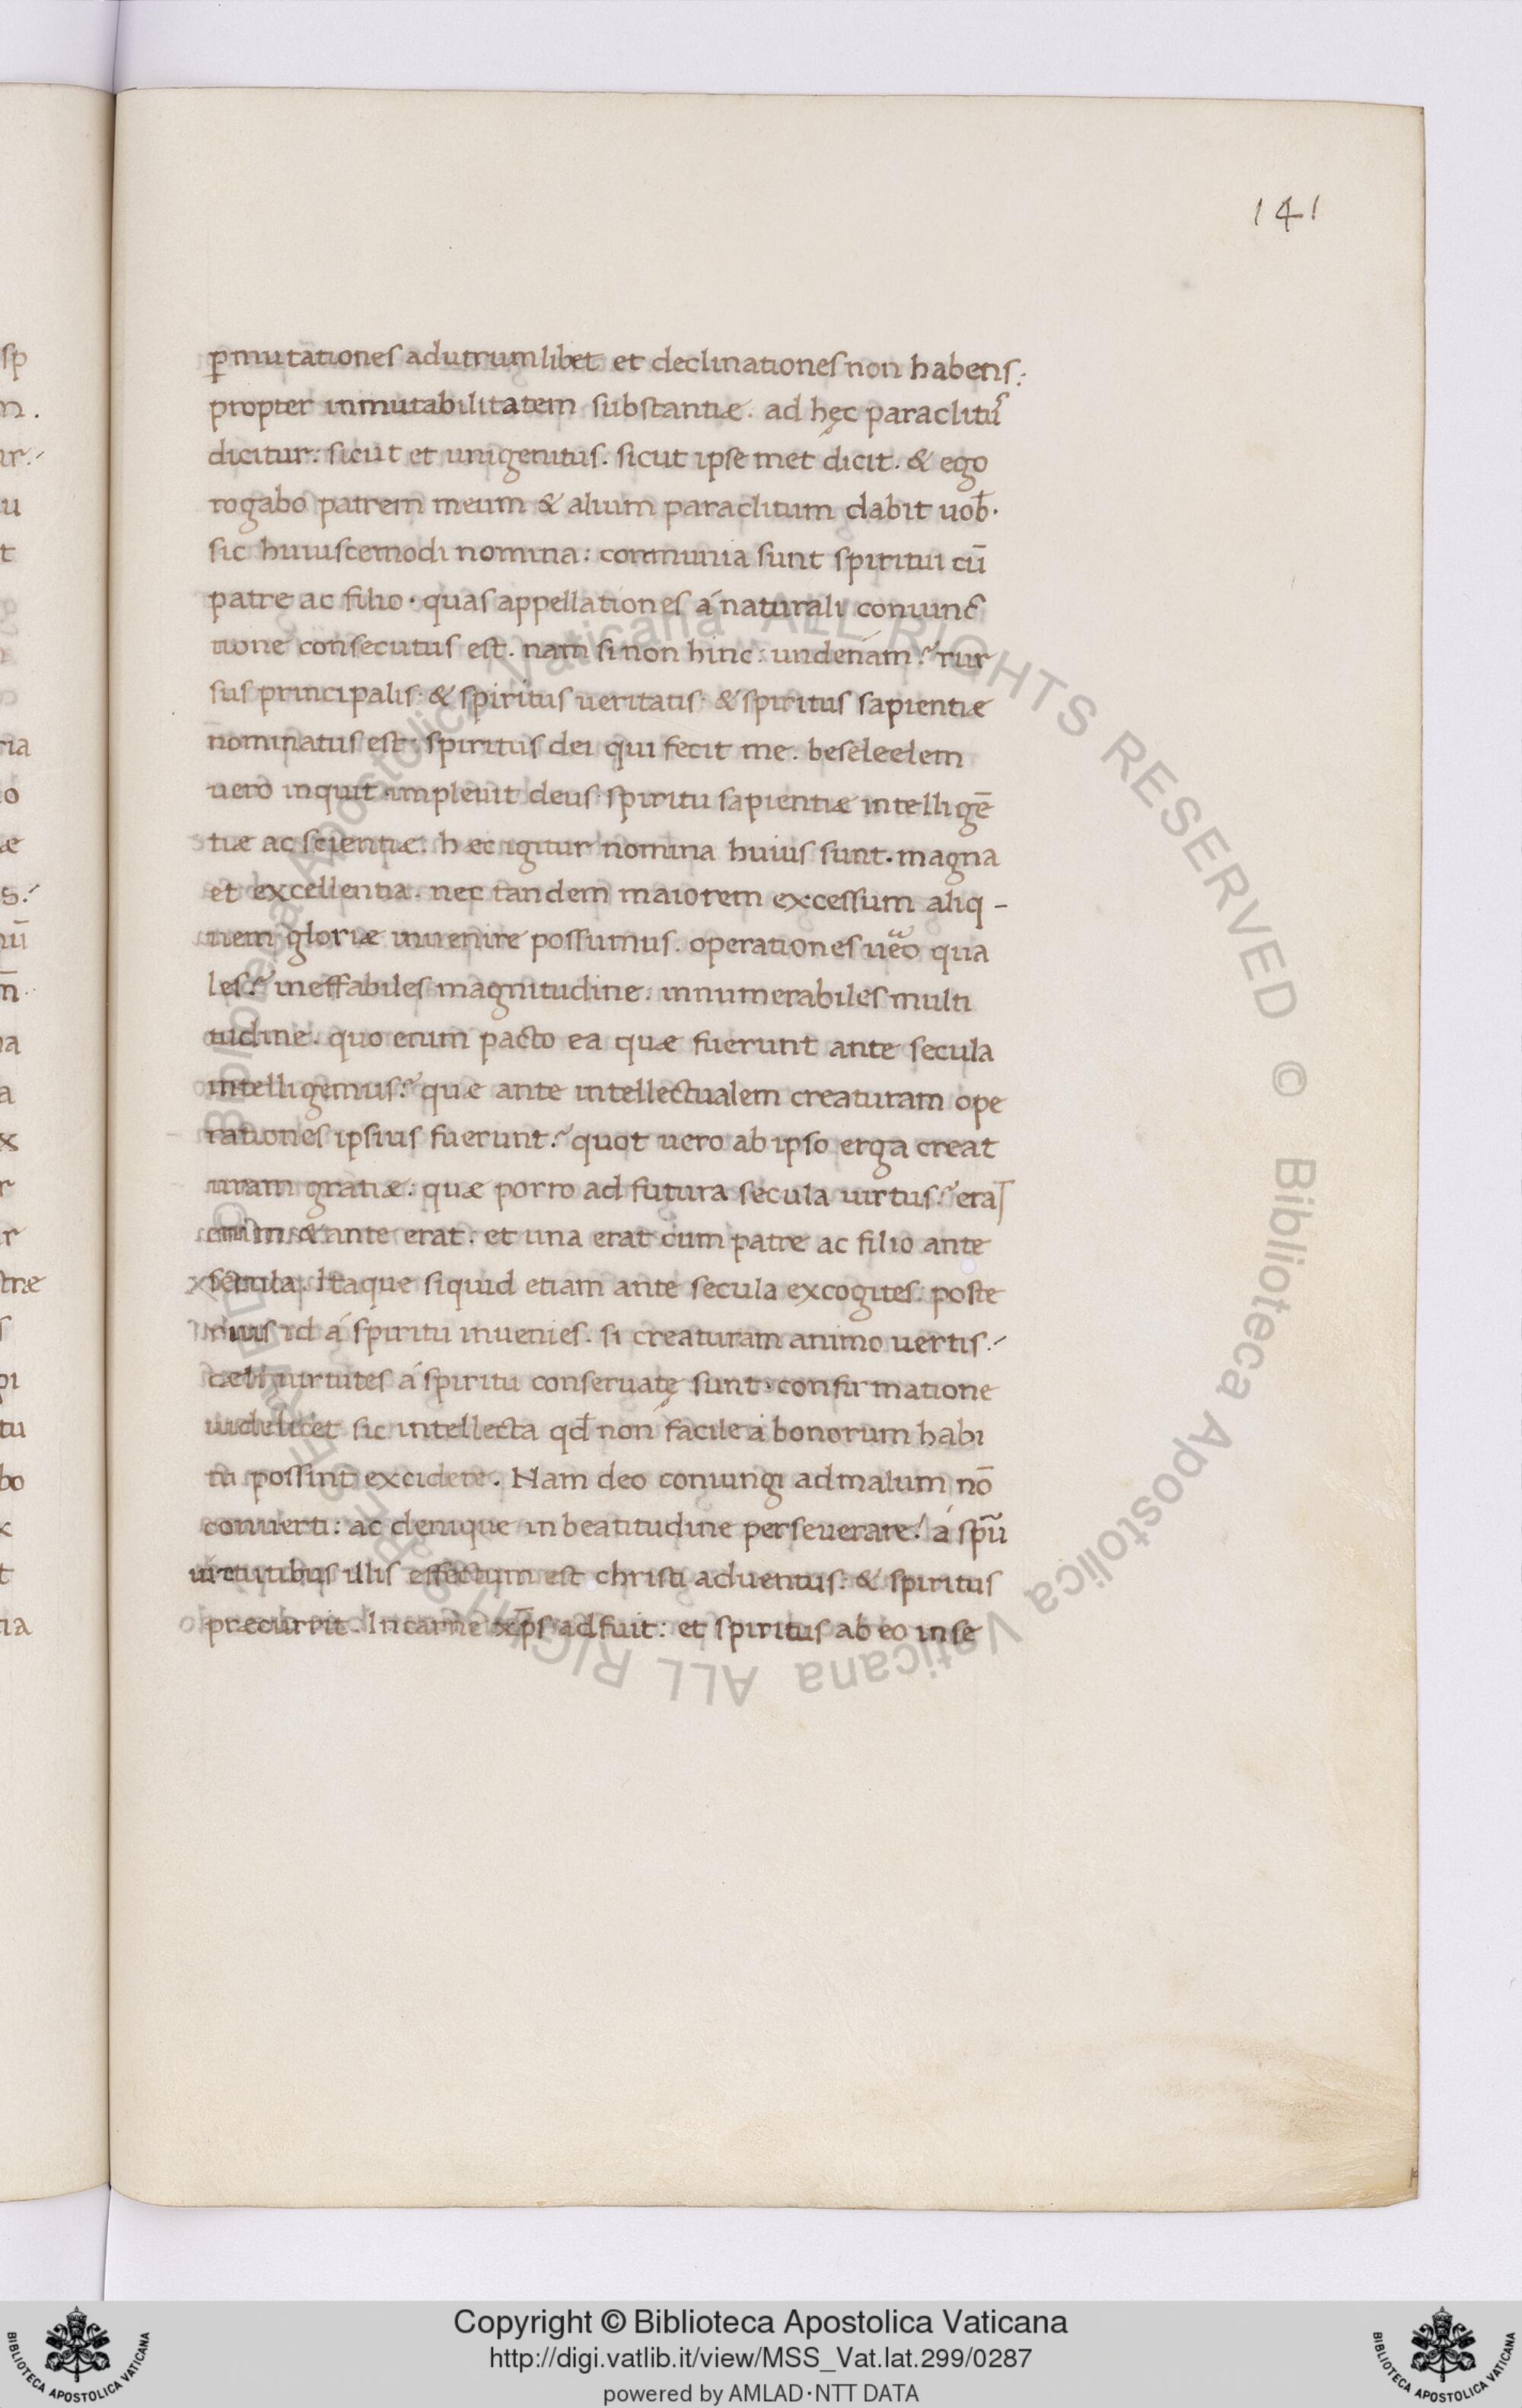 141
ꝑmutationes ad utrumlibet et declinationes non habens:
propter inmutabilitatem substantiæ. ad hęc paraclitũ
dicitur: sicut et unigenitus. sicut ipse met dicit. & ego
rogabo patrem meum & alium paraclitum dabit uob̄.
sic huiuscemodi nomina: communia sunt spiritui cū
patre ac filio. quas appellationes á naturali coniunc
tione consecutus est. nam si non hinc: undenam? rur
sus principalis: & spiritus ueritatis: & spiritus sapientiæ
nominatus est. spiritus dei qui fecit me. beseleelem
uero inquit impleuit deus spiritu sapientiæ intelligē
tiæ ac scientiæ. hæc igitur nomina huius sunt. magna
et excellentia. nec tandem maiorem excessum aliq -
uem gloriæ inuenire possumus. operationes uero qua
les? ineffabiles magnitudine. innumerabiles multi
tudine. quo enim pacto ea quæ fuerunt ante secula
intelligemus? quæ ante intellectualem creaturam ope
rationes ipsius fuerunt? quot uero ab ipso erga creat
uram gratiæ: quæ porro ad futura secula uirtus? erat
enim & ante erat: et una erat cum patre ac filio ante
secula. Itaque siquid etiam ante secula excogites: poste
rius id á spiritu inuenies. si creaturam animo uertis:
cæli uirtutes á spiritu conseruatę sunt. confirmatione
uidelicet sic intellecta qđ non facile á bonorum habi
tu possint excidere. Nam deo coniungi ad malum nō
conuerti: ac denique in beatitudine perseuerare: á spū
uirtutibus illis effectum est christi aduentus: & spiritus
præcurrit. In carne xp̄s adfuit: et spiritus ab eo inse
Copyright © Biblioteca Apostolica Vaticana
http://digi.vatlib.it/view/MSS_Vat.lat.299/0287
powered by AMLAD·NTT DATA